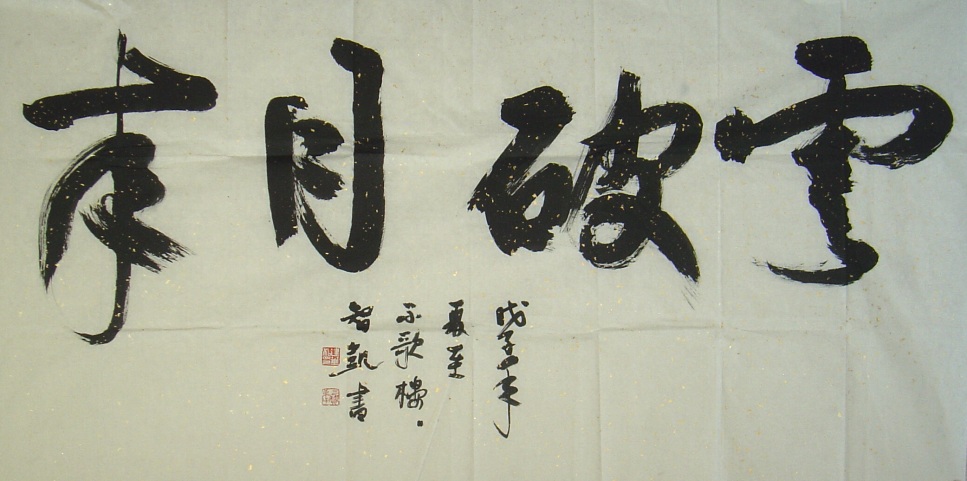 雲破月來
戊子年
夏至
不歌樓
智凱書